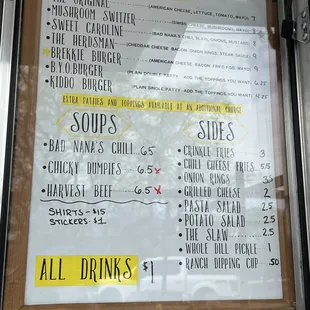 THE ORIGINAL (AMERICAN CHEESE, LETTUCE, TOMATO, MAYO) 7
• MUSHROOM SWITZER
• SWEET CAROLINE (BAD NANA'S CHILI, SLAW, ONIONS, MUSTARD)
• THE HERDSMAN (CHEDDAR CHEESE BACON ONION RINGS, STEAK SAUCE)
• BREKKIE BURGER (AMERICAN CHEESE BACON FRIED MAYO)
• B.Y.O. BURGER (PLAIN DOUBLE PATTY ADD THE TOPPINGS YOU WANT) 6.25
• KIDDO BURGER (PLAIN SINGLE PATTY ADD THE TOPPINGS YOU WANT) 4.25
EXTRA PATTIES AND TOPPINGS AVAILABLE AT AN ADDITIONAL CHARGE
SOUPS
• BAD NANA'S CHILI 6.5
• CHICKY DUMPIES 6.5 x
• HARVEST BEEF 6.5 x
SHIRTS - $15
STICKERS - $1
SIDES
• CRINKLE FRIES 3
• CHILI CHEESE FRIES 5.5
• ONION RINGS 3.5
• GRILLED CHEESE 2
• PASTA SALAD 2.5
• POTATO SALAD 2.5
• THE SLAW 2.5
• WHOLE DILL PICKLE 1
• RANCH DIPPING CUP .50
ALL DRINKS $1